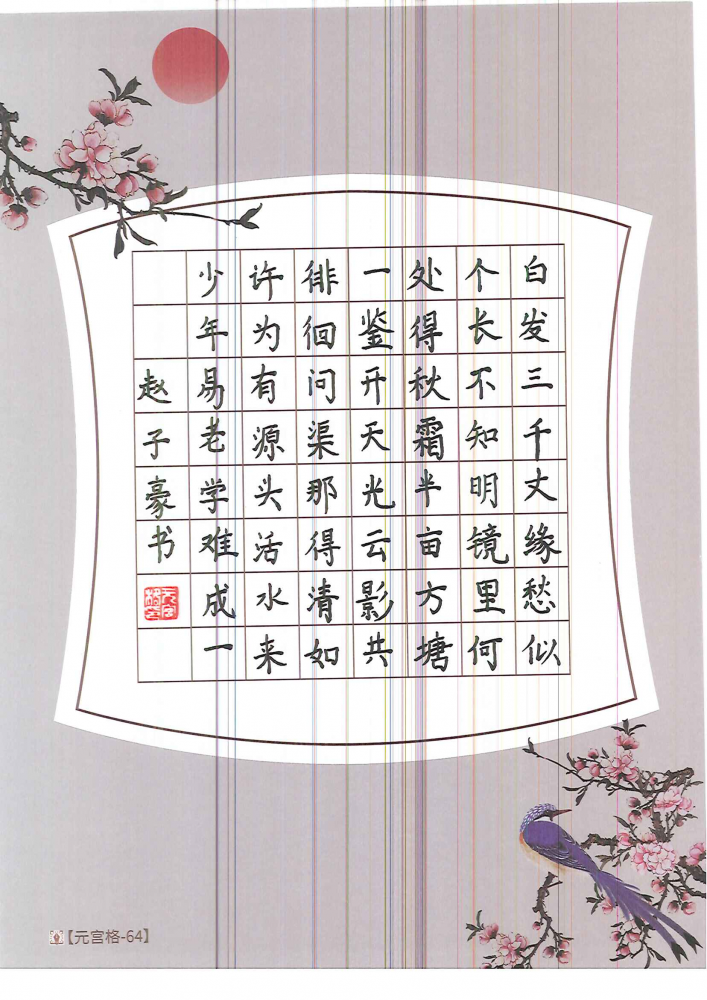 白发三千丈缘愁似
个长不知明镜里何
处得秋霜半亩方塘
一鉴开天光云影共
徘徊问渠那得清如
许为有源头活水来
少年易老学难成一
赵子豪书
元宫格空
【元宫格-64】